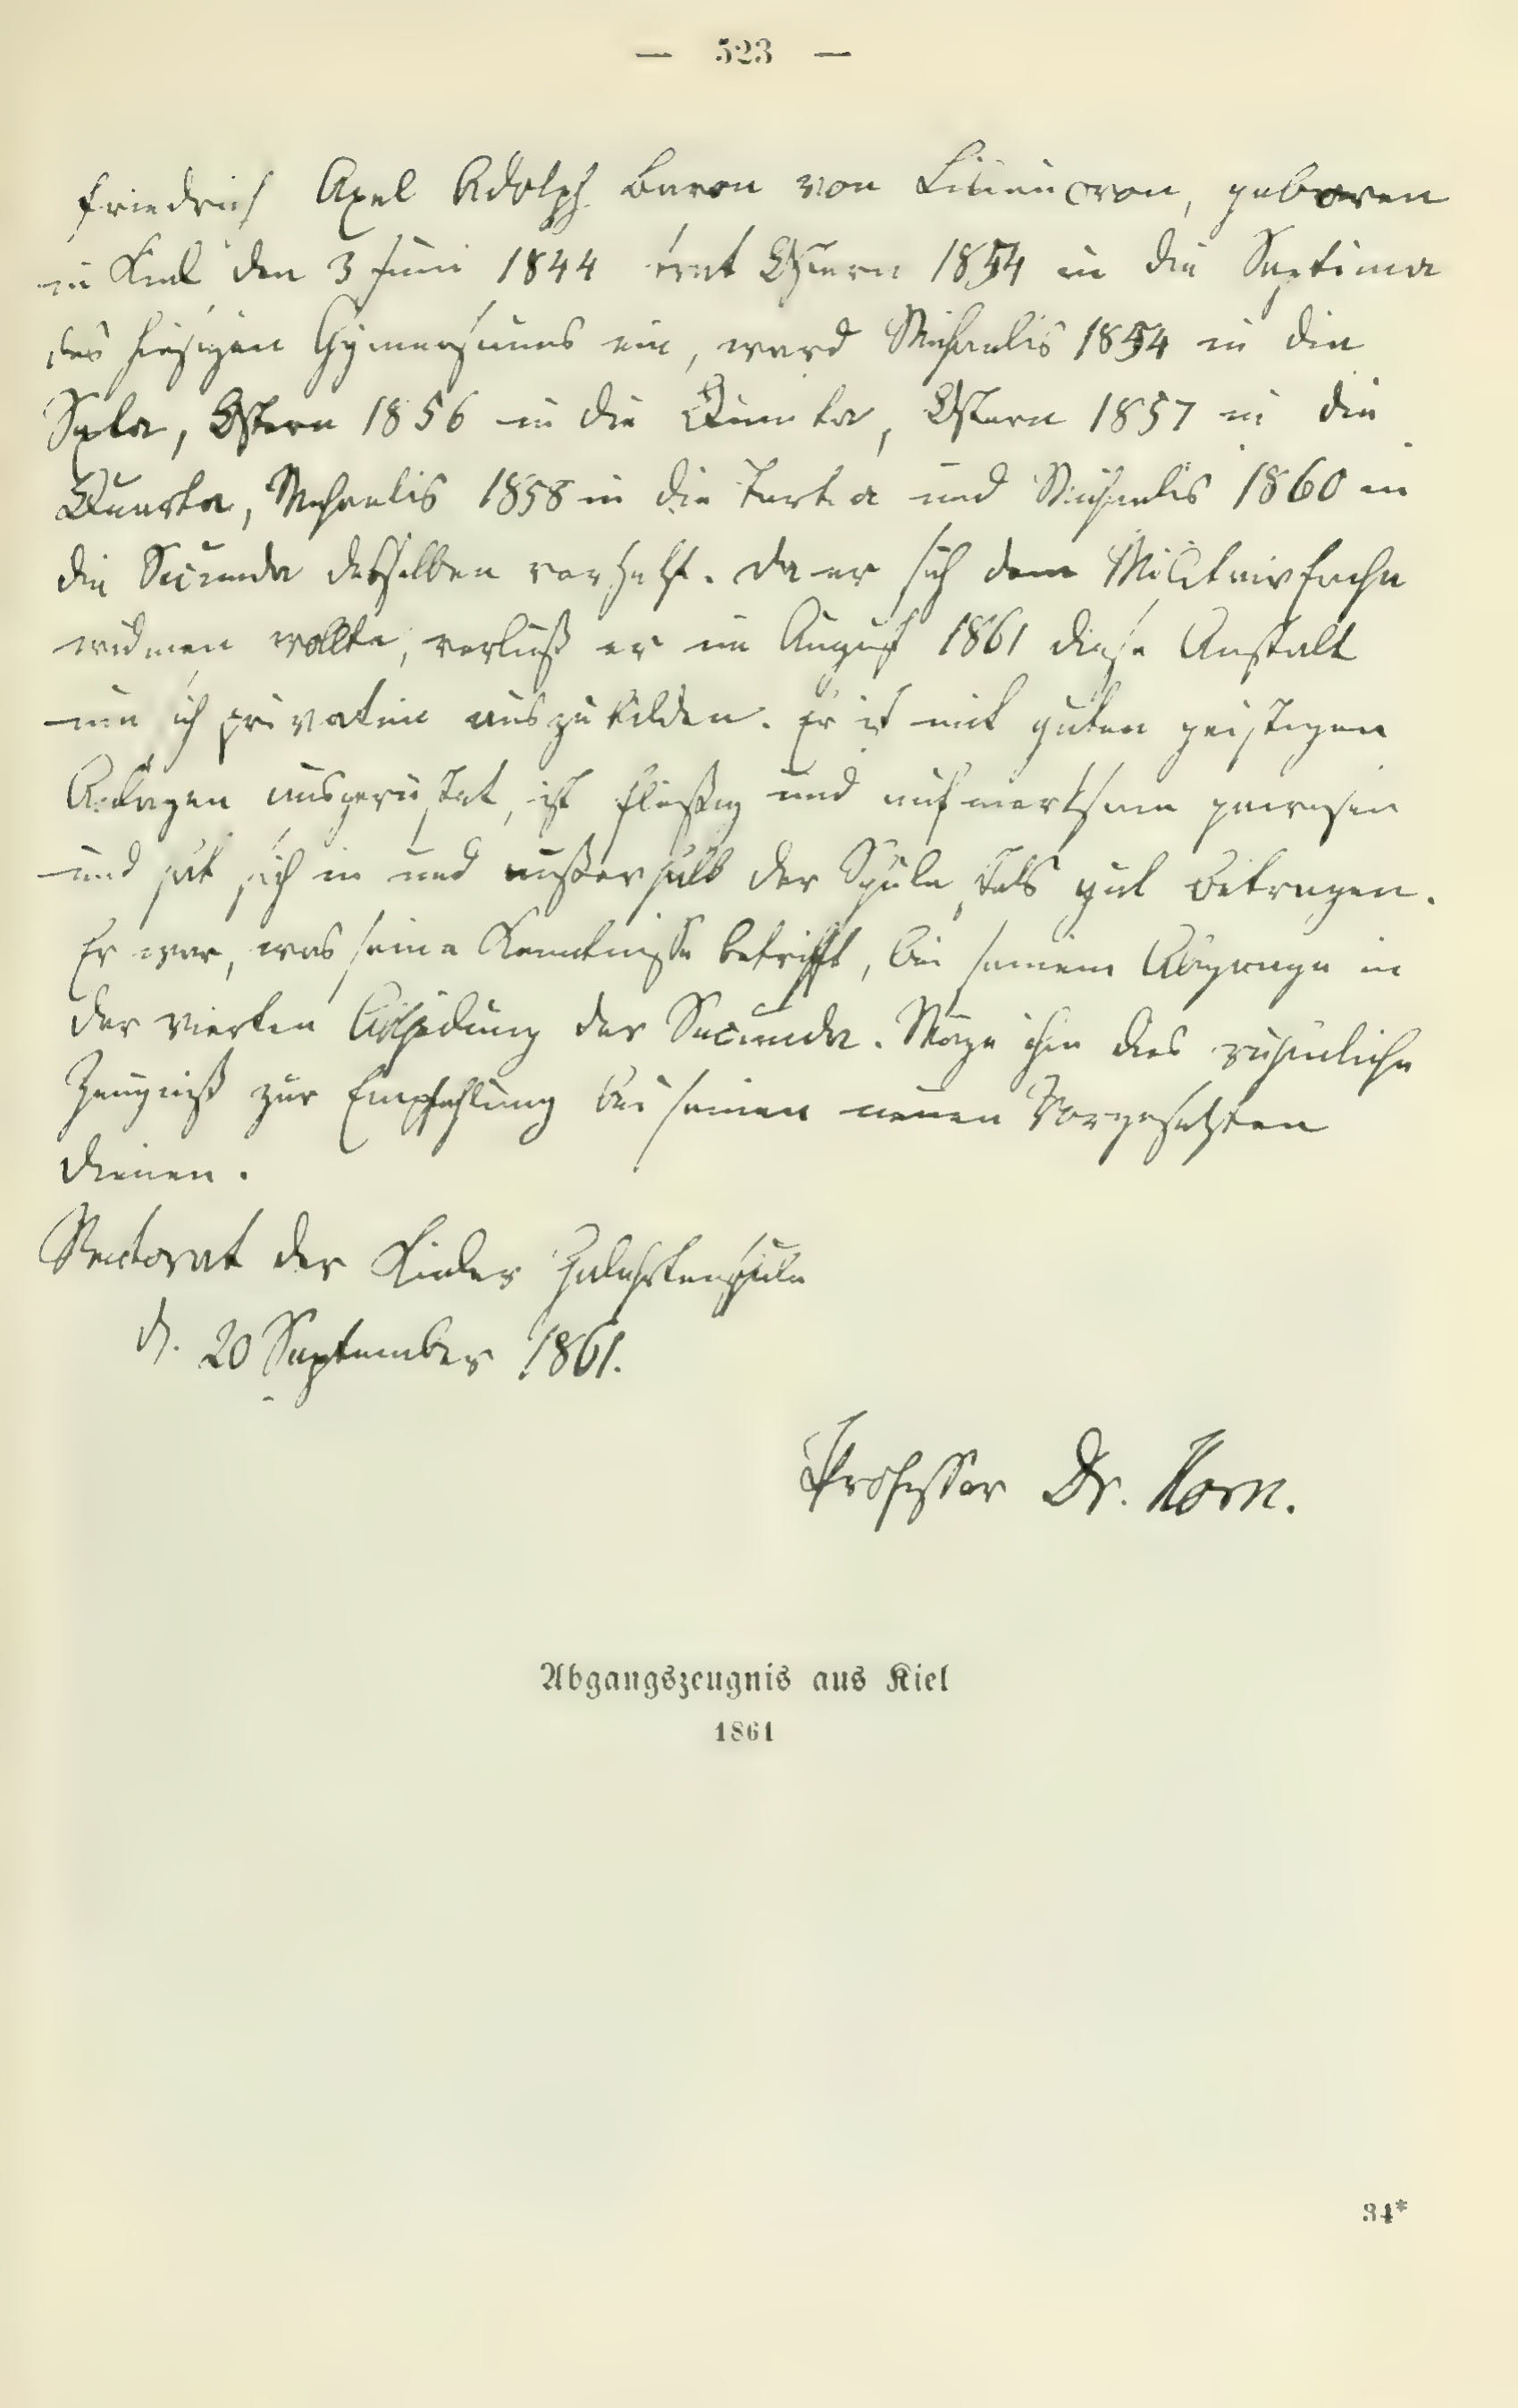 — 523 —
Friedrich Axel Adolph Baron von Liliencron, geboren
in Kiel den 3 Juni 1844 trat Ostern 1854 in die Septima
des hiesigen Gymnasiums ein, ward Michaelis 1854 in die
Sexta, Ostern 1856 in die Quinta, Ostern 1857 in die
Quarta, Michaelis 1858 in die Tertia und Michaelis 1860 in
die Secunda desselben versetzt. Da er sich dem Militairfache
widmen wollte, verließ er im August 1861 diese Anstalt
um sich privatim auszubilden. Er ist mit guten geistigen
Anlagen ausgerüstet, ist fleißig und aufmerksam gewesen
und hat sich in und außerhalb der Schule stets gut betragen.
Er war, was seine Kenntnisse betrifft, bei seinem Abgange in
der vierten Abtheilung der Secunda. Möge ihm dies rühmliche
Zeugniß zur Empfehlung bei seinen neuen Vorgesetzten
dienen.
Rectorat der Kieler Gelehrtenschule
d. 20 September 1861.
Professor Dr. Horn.
Abgangszeugnis aus Kiel
1861
34*